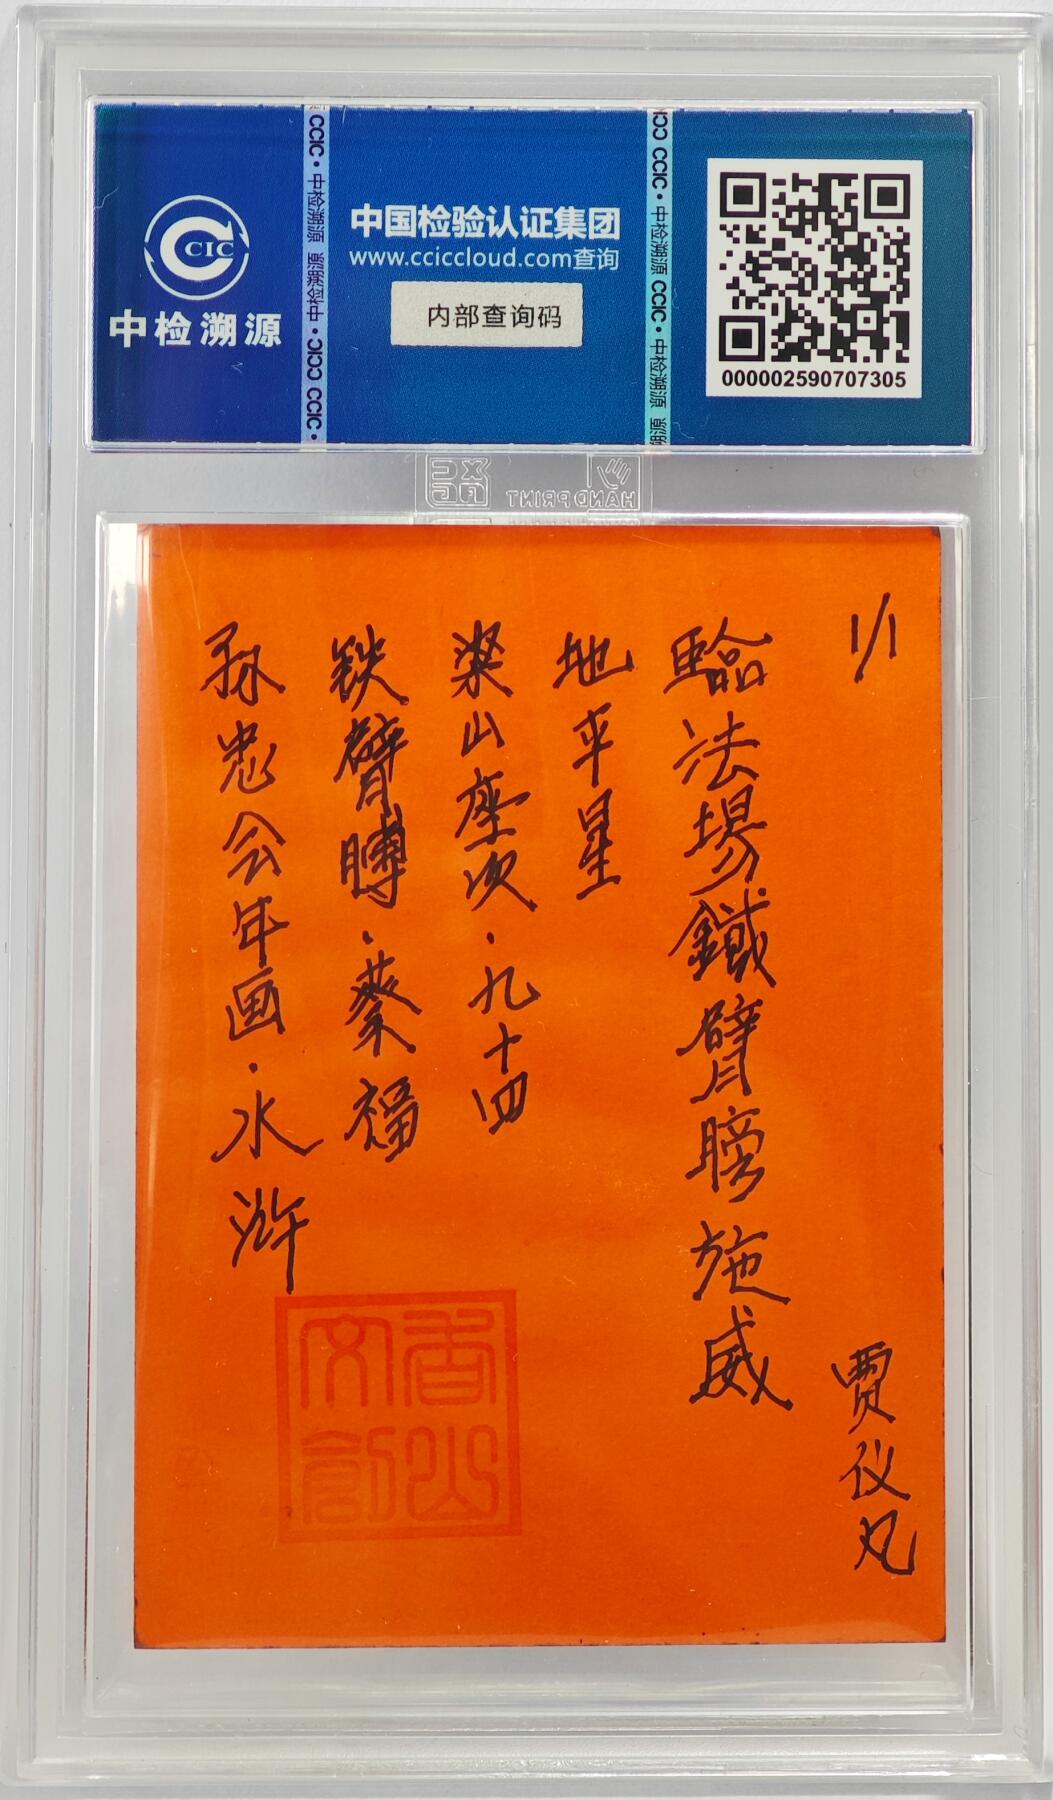 CIC
中检溯源
中国检验认证集团
www.cciccloud.com查询
内部查询码
000002590707305
CCIC·中检溯源
CCIC·中检溯源
HANDPRINT
1/1
臨法場鐵臂膀施威
地平星
梁山座次·九十四
铁臂膊·蔡福
孙忠会年画·水浒
贾仪丸
香山文創